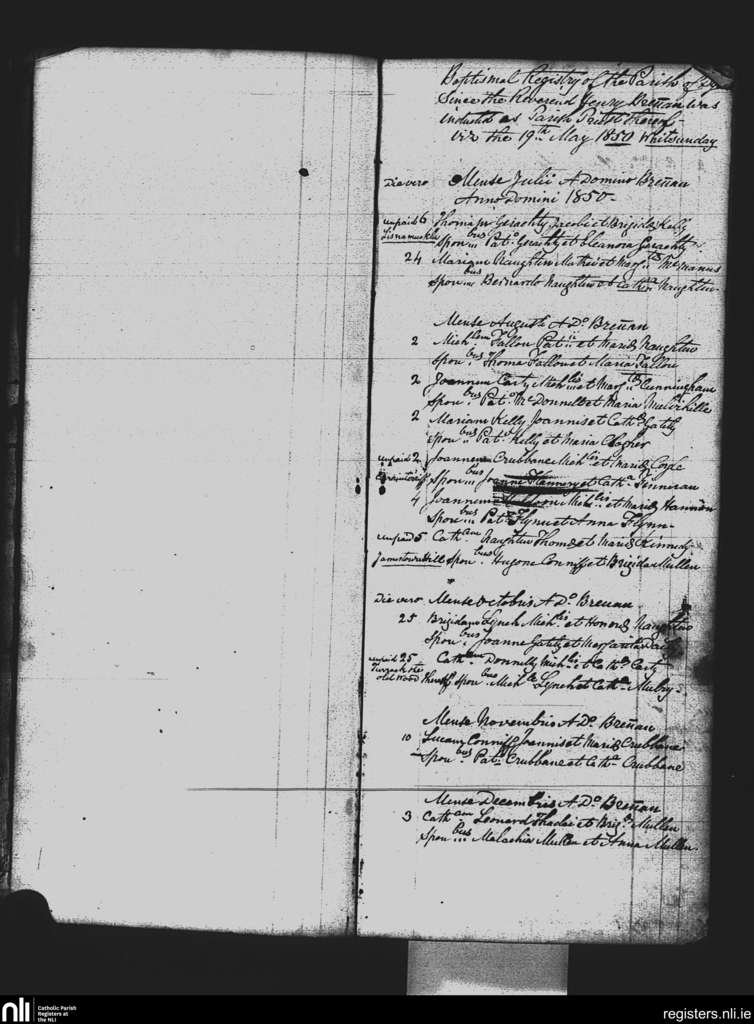 Baptismal Registry of the Parish of
Since the Reverend Henry Breñan was
inducted as Parish Priest thereof -
viz the 19th May 1850 Whitsunday
Die vero Mense Julii A Domino Breñan
Anno Domini 1850 -
unpaid 6 Thomam Geraghty Jacobi et Brigidæ Kelly
Lisnamuskla Sponbus Pato Geraghty et Eleanora Geraghty
24 Mariam Naughten Mathei et Margtæ McManus
Sponbus Bernardo Naughten et Catha Naughten
Mense Augusti A Do Breñan
2 Michlem Fallon Patii et Mariæ Naughten
Sponbus Thoma Fallon et Maria Fallon
2 Joannem Carty Michlis et Margtæ Cunninghame
Sponbus Pato McDonnell et Maria Mulvihille
2 Mariam Kelly Joannis et Cathæ Gately
Sponbus Pato Kelly et Maria Clogher
unpaid 2 Joannem Crubbane Michlis et Mariæ Coyle
Sponbus Joanne Flannery et Catha Finneran
4 Joannem Michlis et Mariæ Hannon
Sponbus Pato Flynn et Anna Flynn -
unpaid 5 Catham Naughten Thomæ et Mariæ Kinnedy
Jamestown Hill Sponbus Hugone Conniff et Brigida Mullen
Die vero Mense Octobris A Do Breñan
25 Brigidam Lynch Michlis et Honoræ Naughten
Sponbus Joanne Gately et Margarita
unpaid 25 Catham Donnelly Michlis et Cathæ Carty
old wood Sponbus Michle Lynch et Catha Mulry -
Mense Novembris A Do Breñan
10 Lucam Conniff Joannis et Mariæ Crubbane
Sponbus Pato Crubbane et Catha Crubbane
Mense Decembris A Do Breñan
3 Catham Leonard Thadei et Brigæ Mullen
Sponbus Malachia Mullen et Anna Mullen.
nli
Catholic Parish
Registers at
the NLI
registers.nli.ie